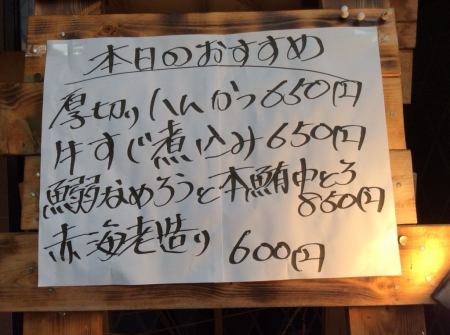 本日のおすすめ
厚切りハムかつ650円
牛すじ煮込み650円
鰯なめろうと本鮪中とろ
850円
赤海老造り 600円